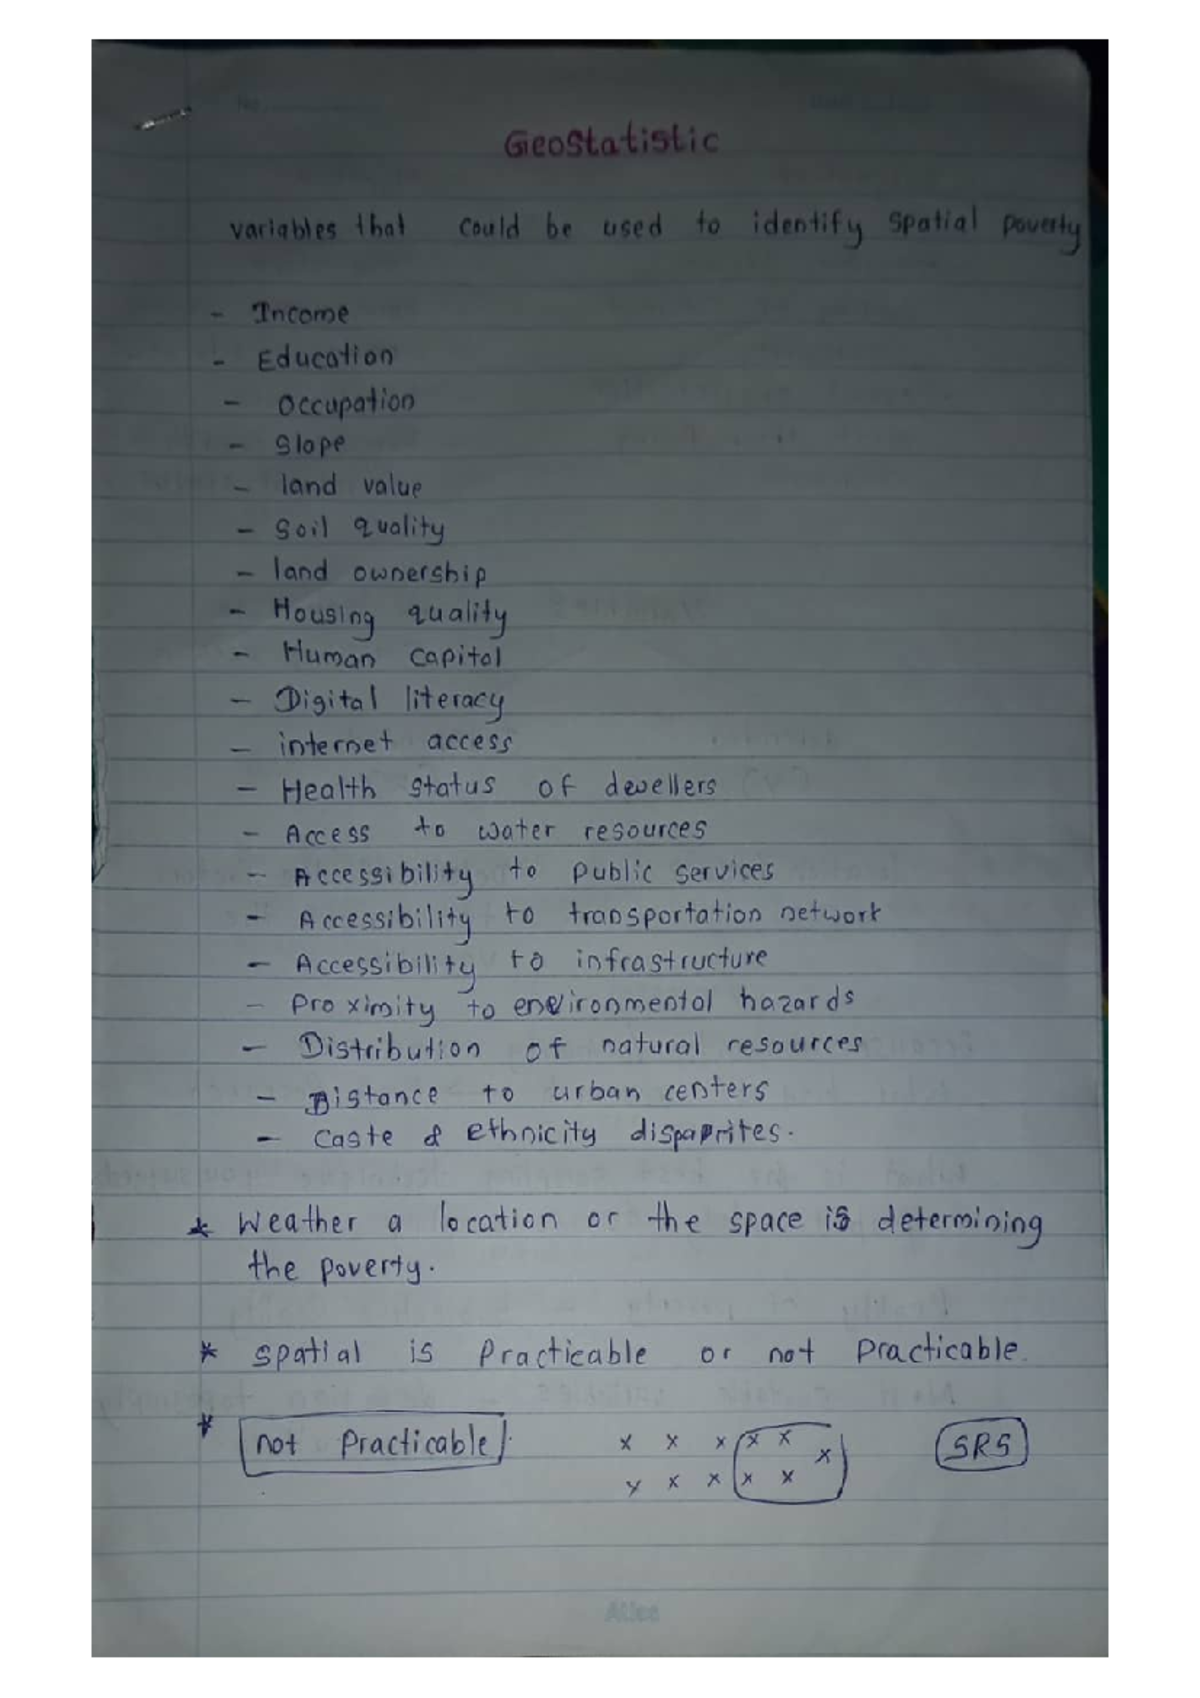 Geostatistic
variables that could be used to identify spatial poverty
- Income
- Education
- Occupation
- Slope
- land value
- Soil quality
- land ownership
- Housing quality
- Human capital
- Digital literacy
- internet access
- Health status of dewellers
- Access to water resources
- Accessibility to public services
- Accessibility to transportation network
- Accessibility to infrastructure
- Proximity to environmental hazards
- Distribution of natural resources
- Distance to urban centers
- Caste & ethnicity disparites.
* Weather a location or the space is determining
the poverty.
* spatial is Practicable or not Practicable.
* not Practicable
x x x x x x
x x x x x
SRS
Atlas